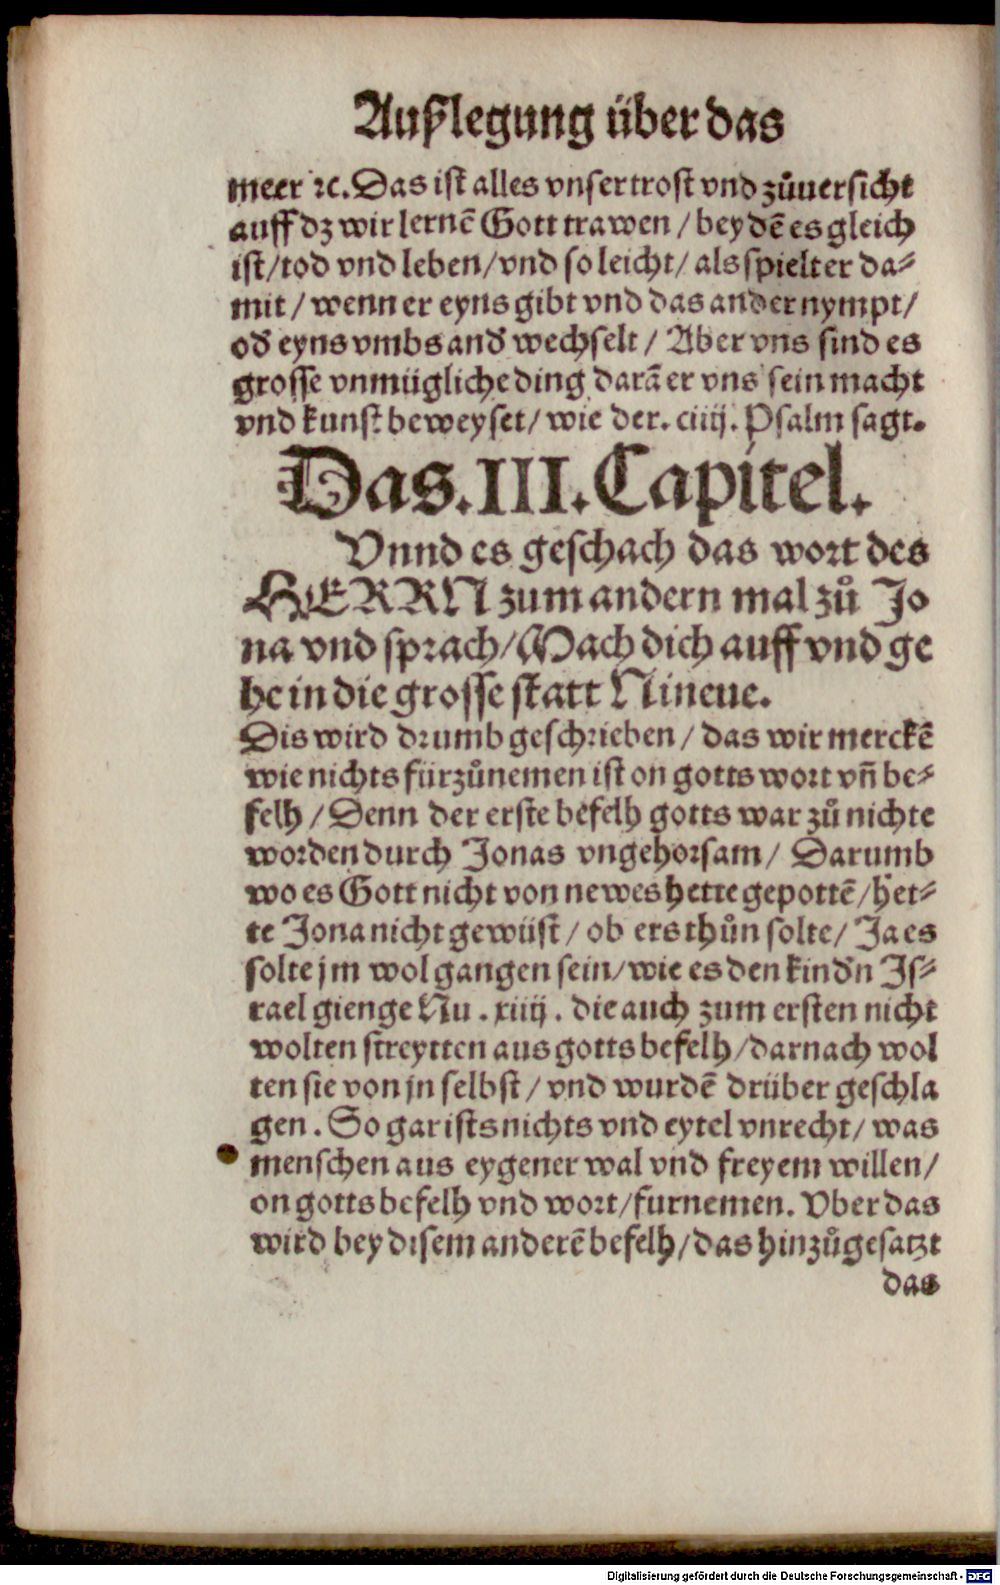 Außlegung über das
meer ꝛc. Das ist alles vnser trost vnd zůuersicht
auff dz wir lernẽ Gott trawen / bey dẽ es gleich
ist / tod vnd leben / vnd so leicht / als spielt er da⸗
mit / wenn er eyns gibt vnd das ander nympt /
od̕ eyns vmbs and̕ wechselt / Aber vns sind es
grosse vnmügliche ding darã er vns sein macht
vnd kunst beweyset / wie der. ciiij. Psalm sagt.
Das. III. Capitel.
Vnnd es geschach das wort des
HERRN zum andern mal zů Jo
na vnd sprach / Mach dich auff vnd ge
he in die grosse statt Nineue.
Dis wird drumb geschrieben / das wir merckẽ
wie nichts fürzůnemen ist on gotts wort vñ be⸗
felh / Denn der erste befelh gotts war zů nichte
worden durch Jonas vngehorsam / Darumb
wo es Gott nicht von newes hette gepottẽ / het⸗
te Jona nicht gewüst / ob ers thůn solte / Ja es
solte jm wol gangen sein / wie es den kind̕n Js⸗
rael gienge Nu. xiiij. die auch zum ersten nicht
wolten streytten aus gotts befelh / darnach wol
ten sie von jn selbst / vnd wurdẽ drüber geschla
gen. So gar ists nichts vnd eytel vnrecht / was
menschen aus eygener wal vnd freyem willen /
on gotts befelh vnd wort / furnemen. Vber das
wird bey disem anderẽ befelh / das hinzůgesatzt
das
Digitalisierung gefördert durch die Deutsche Forschungsgemeinschaft - DFG